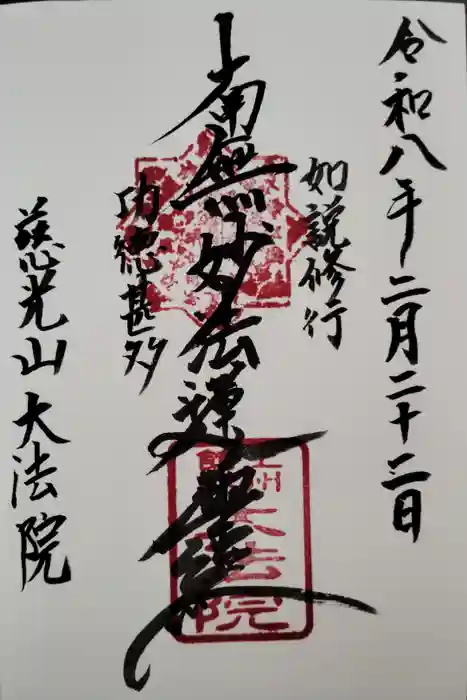 令和八年二月二十二日
如説修行
南無妙法蓮華経
功徳甚多
慈光山大法院
大法院